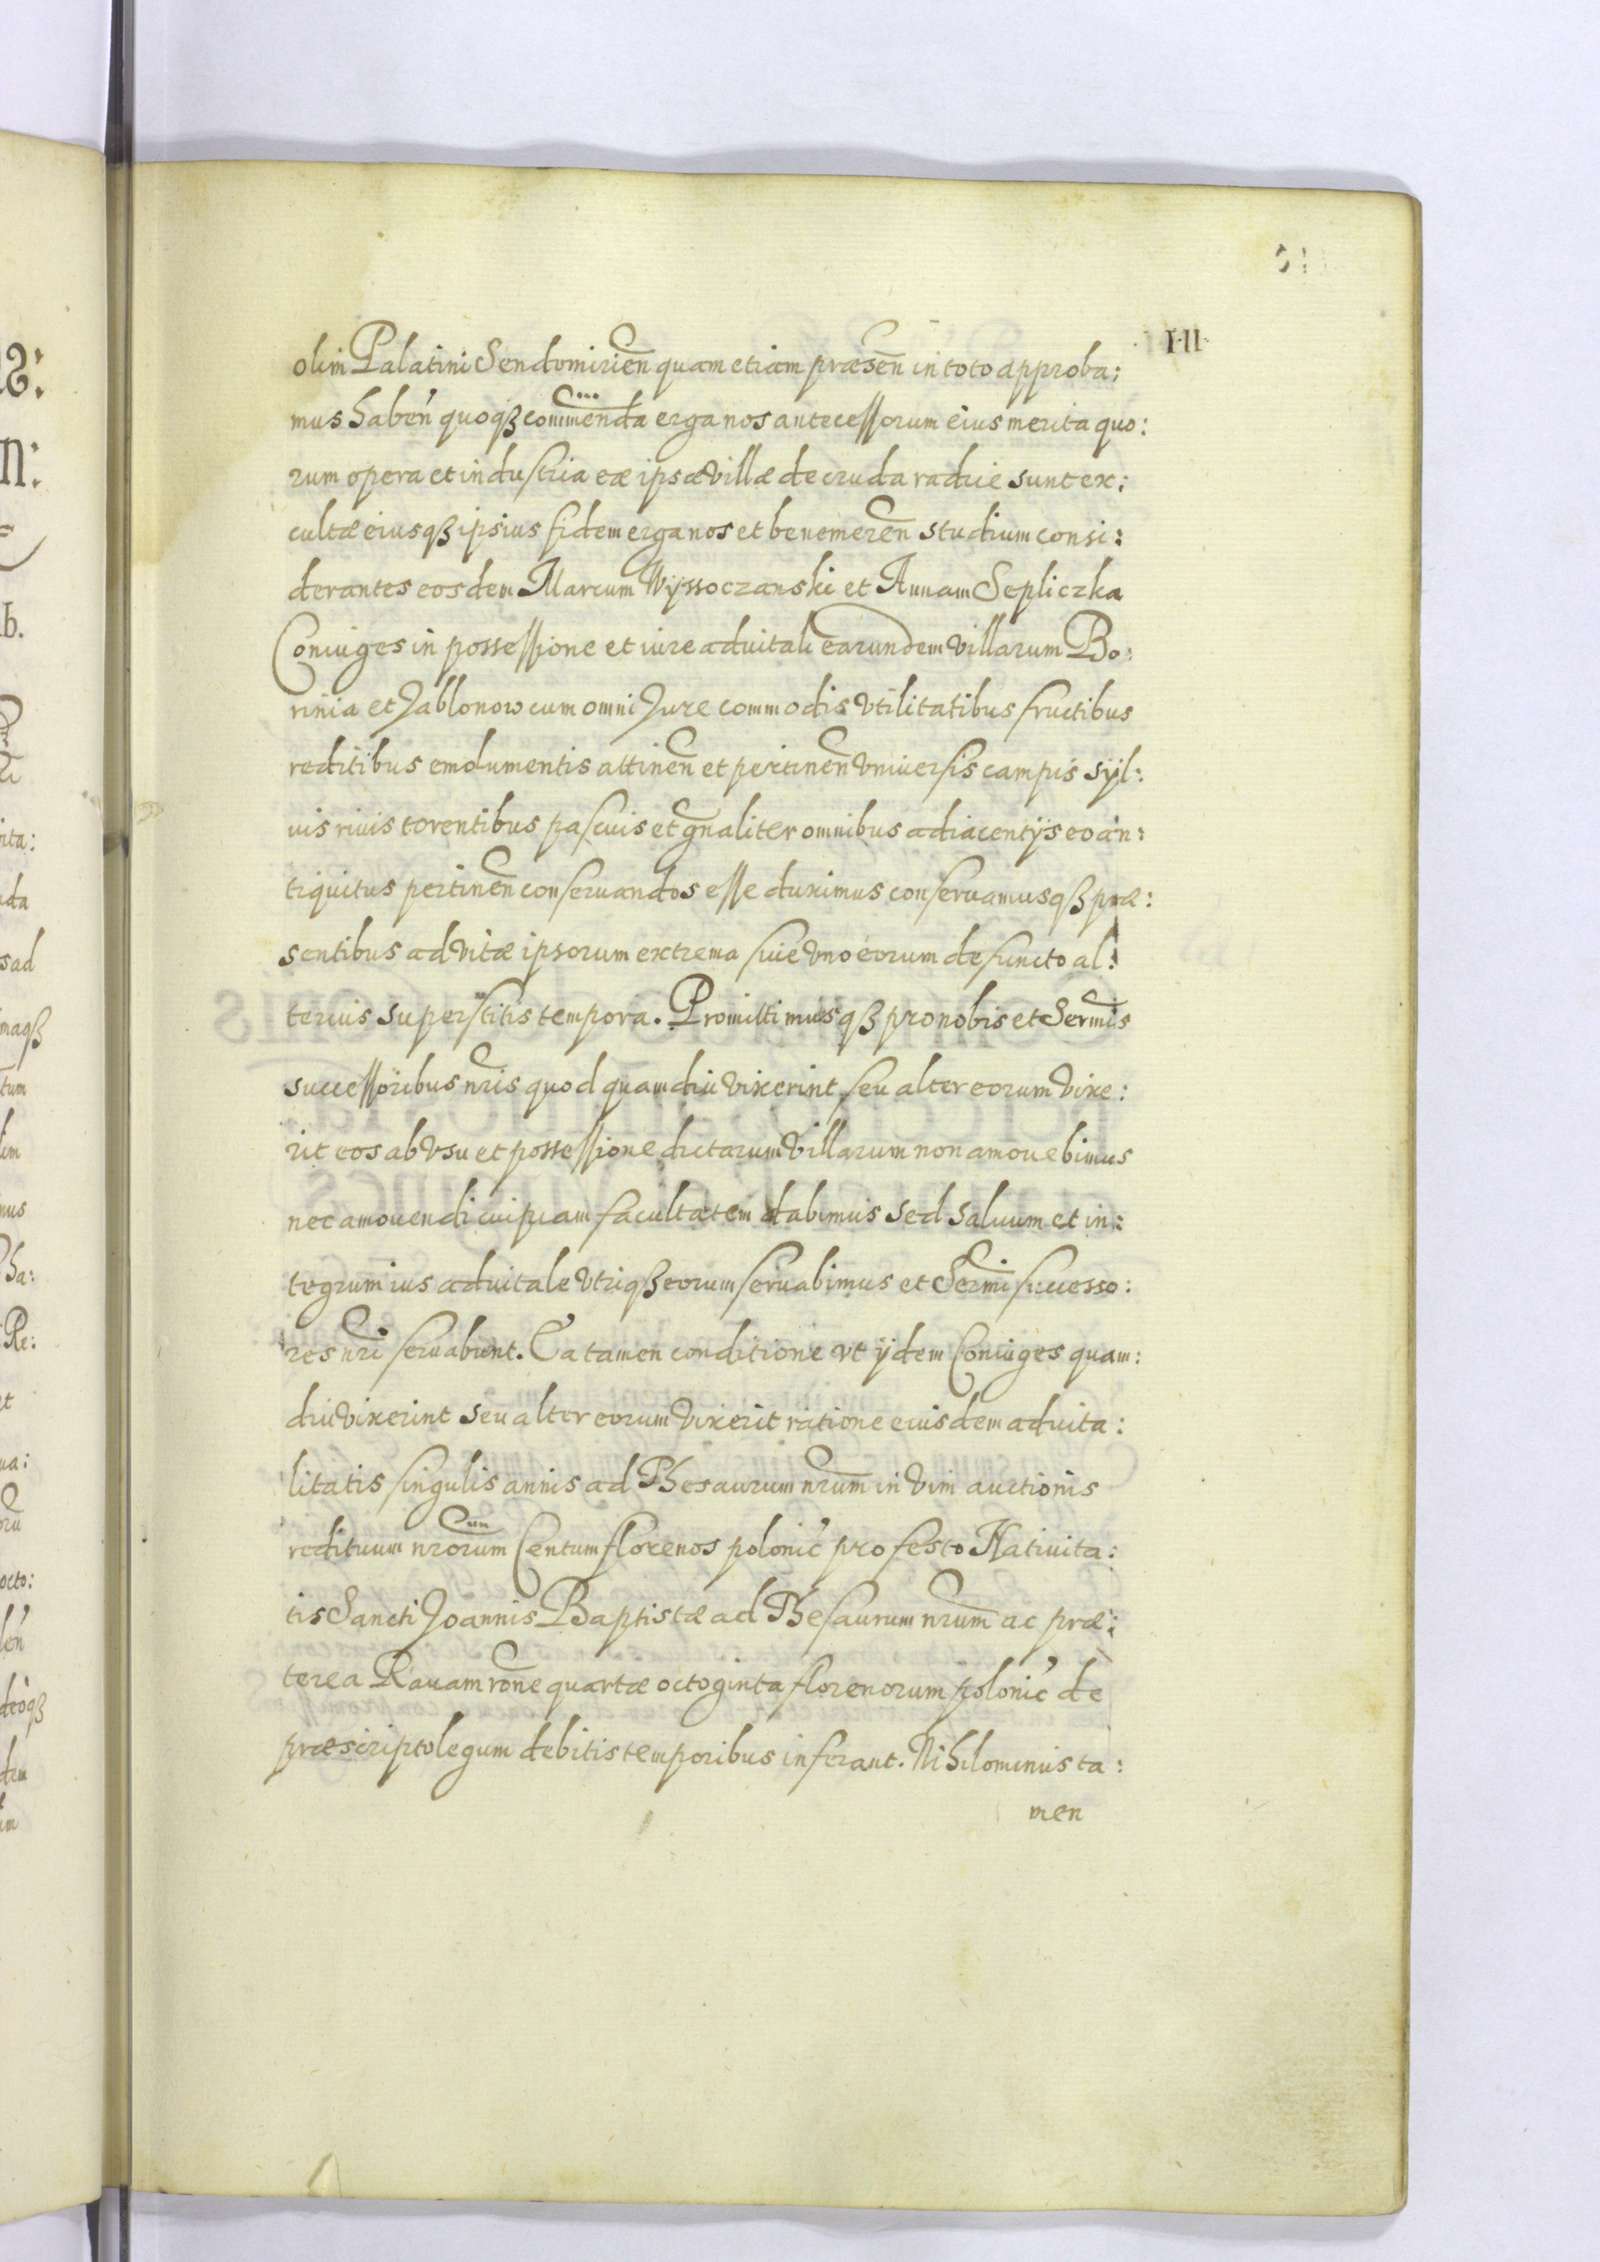 III
olim Palatini Sendomirien̄ quam etiam præsen̄ in toto approba:
mus haben̄ quoqꝫ commenda erga nos antecessorum eius merita quo:
rum opera et industria eæ ipsæ villæ de cruda radice sunt ex:
cultæ eiusqꝫ ipsius fidem erga nos et bene meren̄ studium consi:
derantes eosdem Marcum Wyssoczanski et Annam Sepliczka
Coniuges in possessione et iure aduitali earundem villarum Bo:
rinia et Jablonow cum omni Jure commodis vtilitatibus fructibus
reditibus emolumentis attinen̄ et pertinen̄ vniuersis campis syl:
uis riuis torentibus pascuis et gn̄aliter omnibus adiacentijs eo an:
tiquitus pertinen̄ conseruandos esse duximus conseruamusqꝫ præ:
sentibus ad vitæ ipsorum extrema siue vno eorum defuncto al:
terius superstitis tempora. Promittimusqꝫ pro nobis et Serm̄is
successoribus nr̄is quod quamdiu vixerint seu alter eorum vixe:
rit eos ab vsu et possessione dictarum villarum non amouebimus
nec amouendi cuipiam facultatem dabimus sed saluum et in:
tegrum ius aduitale vtriqꝫ eorum seruabimus et Serm̄i successo:
res nr̄i seruabunt. Ea tamen conditione vt ijdem Coniuges quam:
diu vixerint seu alter eorum vixerit ratione eiusdem aduita:
litatis singulis annis ad Thesaurum nr̄um in vim auctionis
redituum nr̄orum Centum florenos polonic̄ pro festo Natiuita:
tis Sancti Joannis Baptistæ ad Thesaurum nr̄um ac præ:
terea Rauam rōne quartæ octoginta florenorum polonic̄ de
præscripto legum debitis temporibus inferant. Nihilominus ta:
men